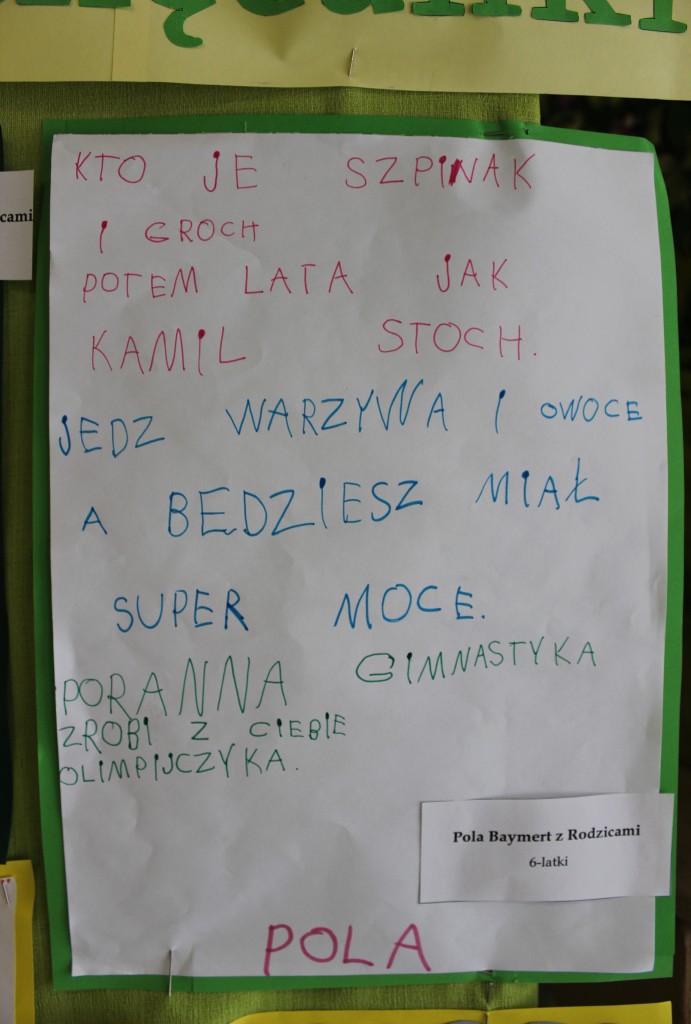 KTO JE SZPINAK
I GROCH
POTEM LATA JAK
KAMIL STOCH.
JEDZ WARZYWA I OWOCE
A BĘDZIESZ MIAŁ
SUPER MOCE.
PORANNA GIMNASTYKA
ZROBI Z CIEBIE
OLIMPIJCZYKA.
Pola Baymert z Rodzicami
6-latki
POLA